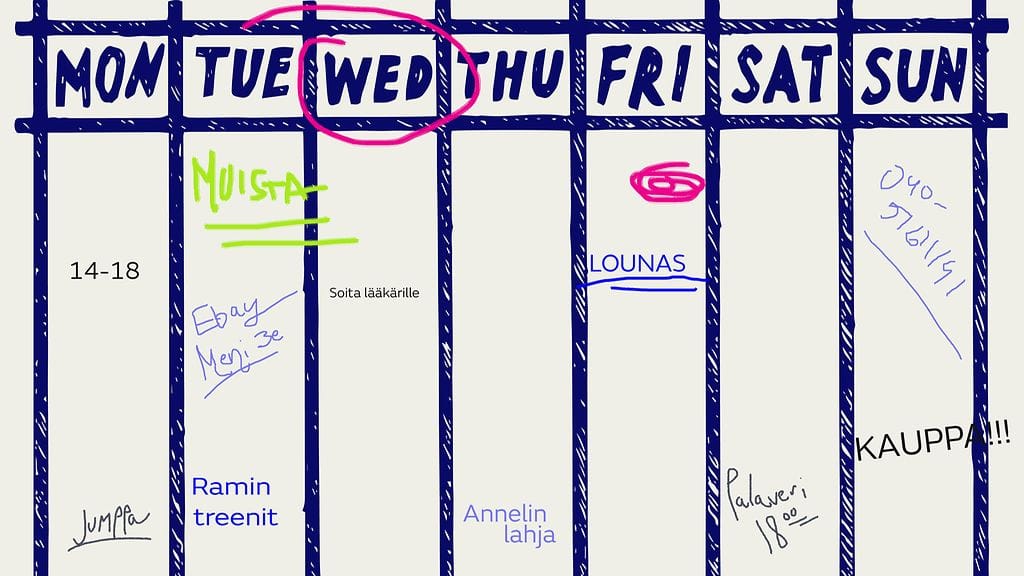 MON TUE WED THU FRI SAT SUN
14-18
Jumppa
MUISTA
Ebay
Ramin
treenit
Soita lääkärille
Annelin
lahja
LOUNAS
Palaveri
18⁰⁰
040-
KAUPPA!!!